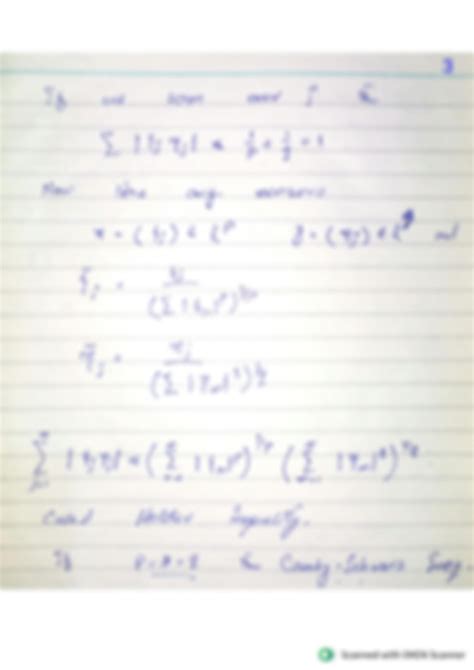 3
If we sum over j
∑ | ξ̃j η̃j | ≤ 1/p + 1/q = 1
Now take any nonzero
x = (ξj) ∈ l^p y = (ηj) ∈ l^q and
ξ̃j = ξj / (∑ |ξm|^p)^1/p
η̃j = ηj / (∑ |ηm|^q)^1/q
∑ | ξj ηj | ≤ ( ∑ |ξm|^p )^1/p ( ∑ |ηm|^q )^1/q
Called Holder Inequality.
If p = 2 = q Cauchy-Schwarz Ineq.
Scanned with OKEN Scanner